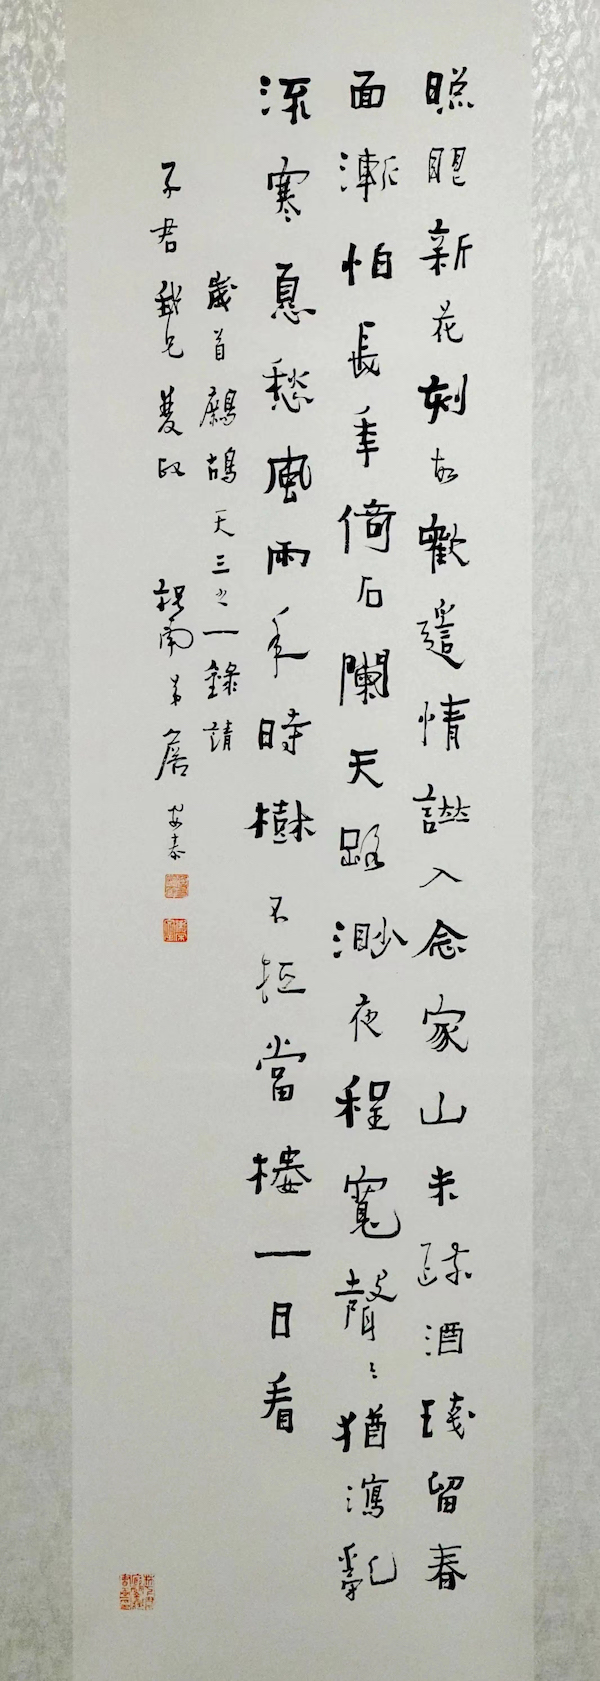 照眼新花刻故歡遙情譜入念家山未疏酒琖留春
面漸怕長年倚石闌天路渺夜程寬聲〻猶瀉亂
流寒息愁風雨年時樹不當樓一日看
歲首鷓鴣天三之一錄請
子君我兄雙政 祝南弟詹安泰